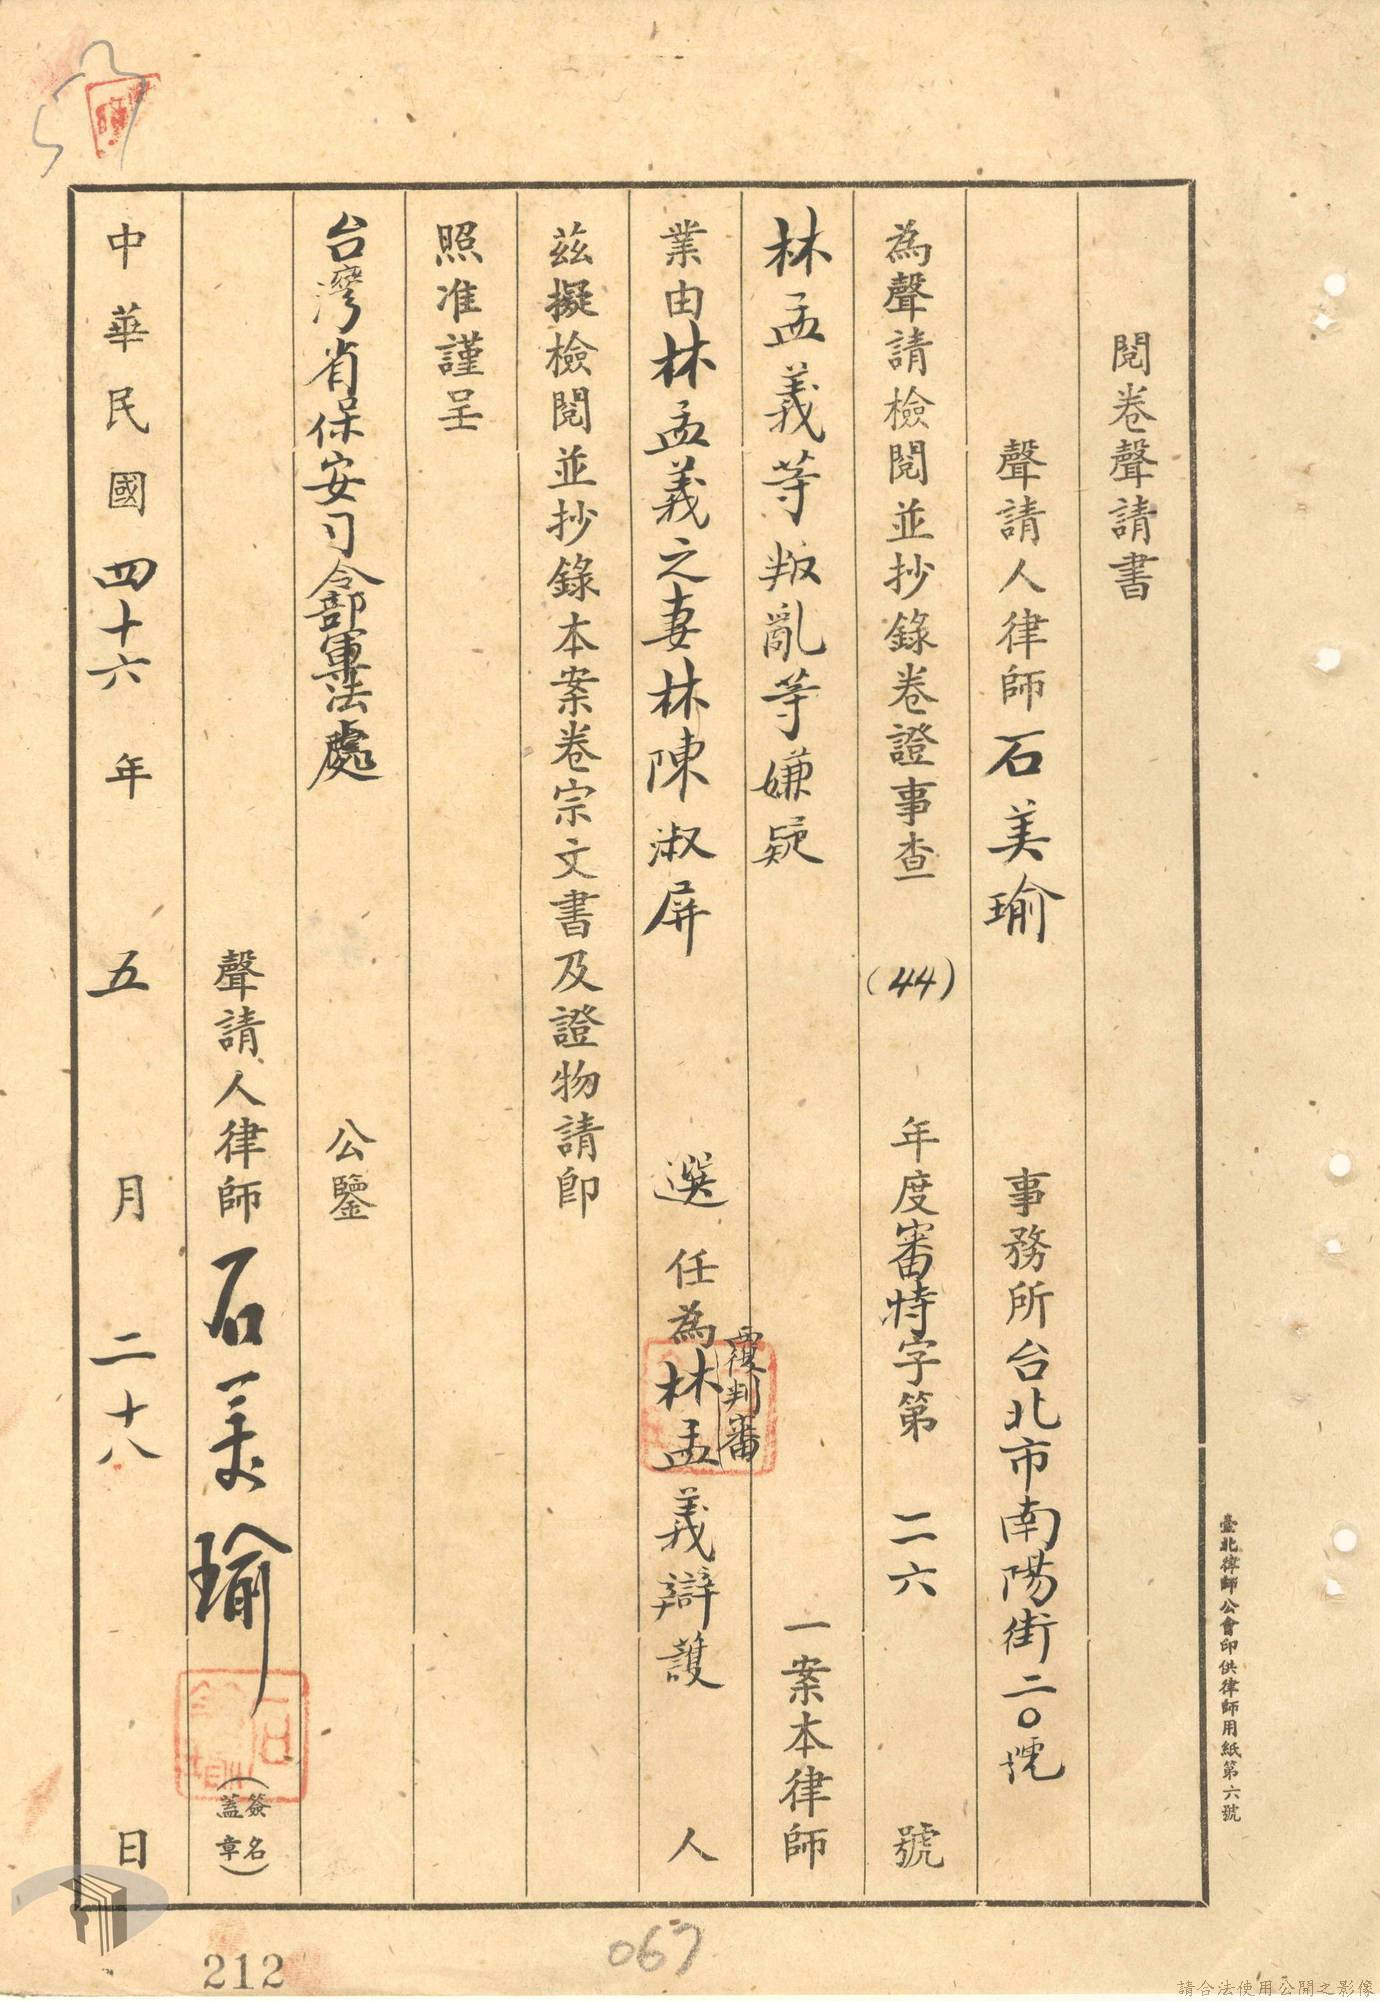 臺北律師公會印供律師用紙第六號
閱卷聲請書
聲請人律師石美瑜 事務所台北市南陽街二〇號
為聲請檢閱並抄錄卷證事查(44)年度審特字第二六號
林孟義等叛亂等嫌疑 一案本律師
業由林孟義之妻林陳淑屏 選任為林孟義辯護人
覆判審
茲擬檢閱並抄錄本案卷宗文書及證物請卽
照准謹呈
台灣省保安司令部軍法處 公鑒
聲請人律師石美瑜
(簽名蓋章)
中華民國四十六年五月二十八日
212
067
請合法使用公開之影像